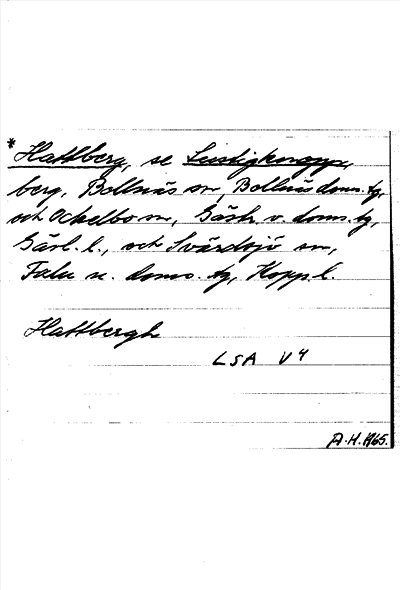 * Hattberg, se Lustigknopp-
berg, Bollnäs sn, Bollnäs doms. tg,
och Ockelbo sn, Gästr. v. doms. tg,
Gävl. l., och Svärdsjö sn,
Falu n. doms. tg, Kopp. l.
Hattbergh
LSA V 4
A.H. 1965.